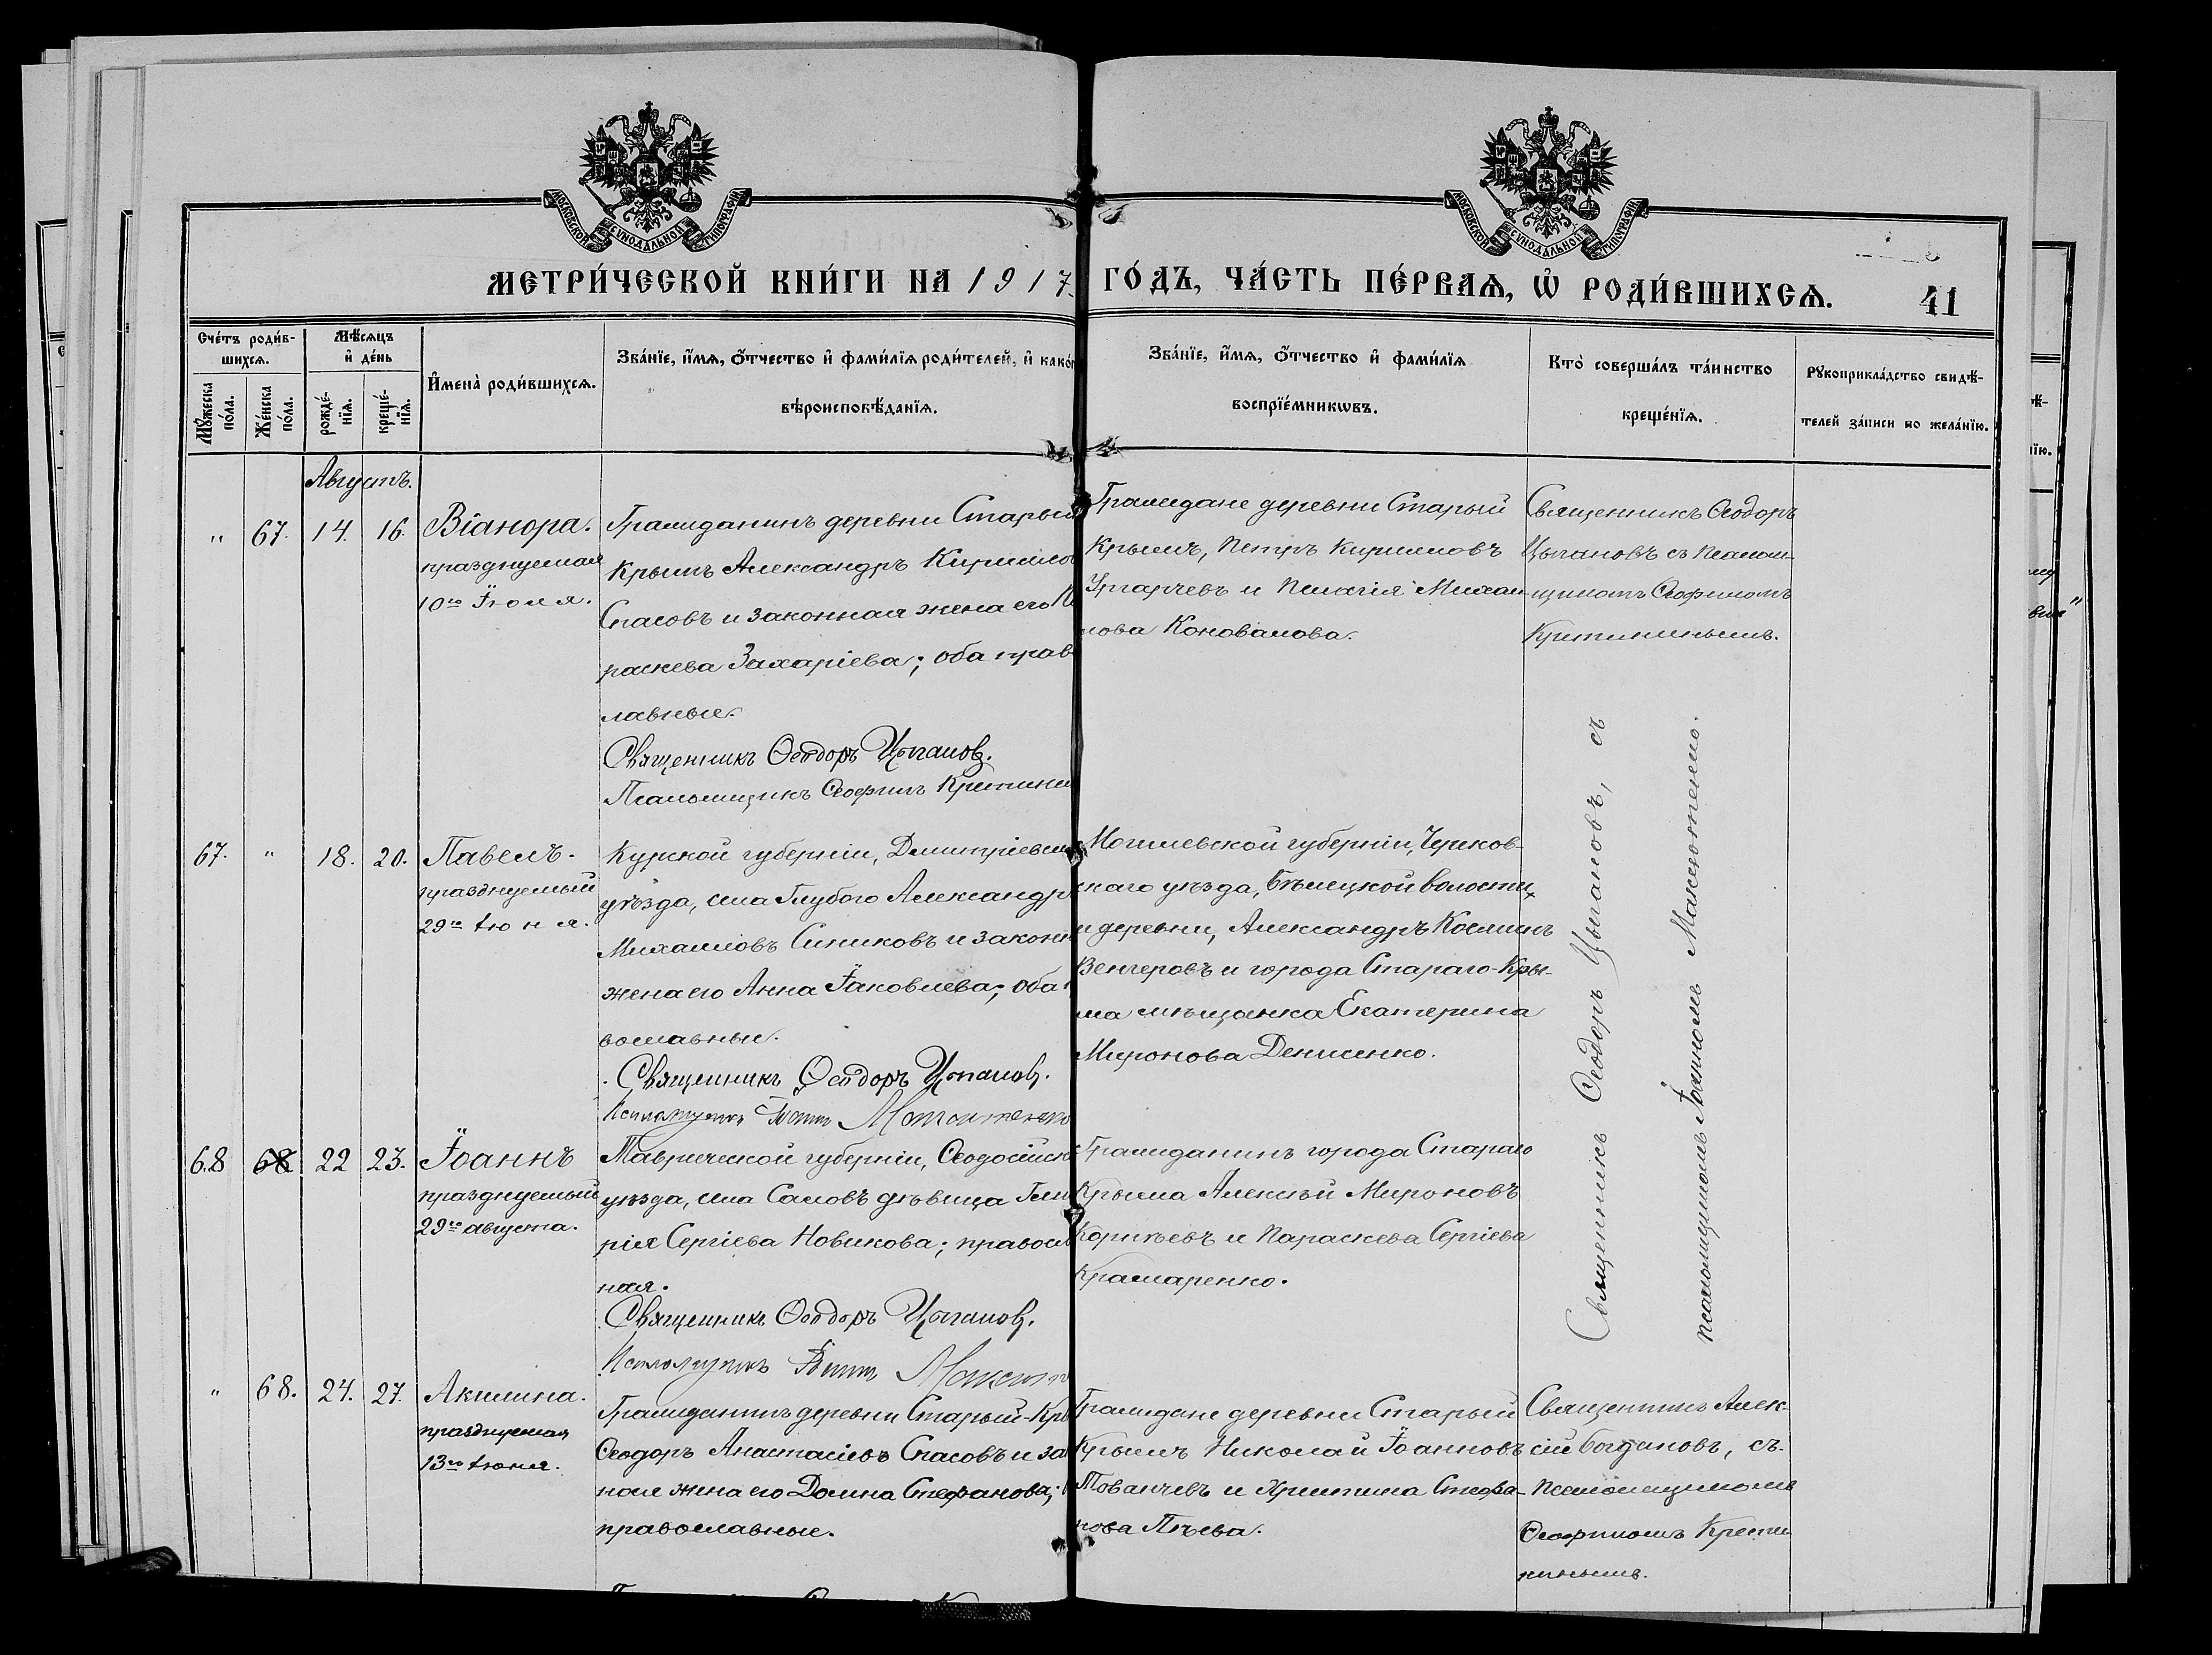 МОСКОВСКОЙ СѴНОДАЛЬНОЙ ТИПОГРАФІИ
МОСКОВСКОЙ СѴНОДАЛЬНОЙ ТИПОГРАФІИ
МЕТРИ́ЧЕСКОЙ КНИ́ГИ НА 1917 ГО́ДЪ, ЧА́СТЬ ПЕ́РВАѦ, Ѡ҆ РОДИ́ВШИХСѦ.
41
Сче́тъ роди́в-
шихсѧ.
Мꙋ́жеска
по́ла.
Же́нска
по́ла.
Мѣ́сѧцъ
и҆ де́нь
рожде́-
нїѧ.
креще́-
нїѧ.
И҆мена̀ роди́вшихсѧ.
Зва́нїе, и҆́мѧ, ѻ҆́тчество и҆ фами́лїѧ роди́телей, и҆ како́г
вѣроисповѣ́данїѧ.
Зва́нїе, и҆́мѧ, ѻ҆́тчество и҆ фами́лїѧ
воспрїе́мникѡвъ.
Кто̀ соверша́лъ та́инство
креще́нїѧ.
Рꙋкоприкла́дство свидѣ́-
телей за́писи по жела́нїю.
Августъ.
" 67. 14. 16.
Віанора.
празднуемая
10го Іюля.
Гражданинъ деревни Старый
Крымъ Александръ Кирилло
Спасовъ и законная жена его П
раскева Захаріева; оба прав
лавные.
Священникъ Ѳеодоръ Цыганов.
Псаломщикъ Ѳеофилъ Критини
Граждане деревни Старый
Крымъ, Петръ Кирилловъ
и Пелагія Михаи
лова Коновалова.
Священникъ Ѳеодоръ
Цыгановъ съ псалом-
щикомъ Ѳеофиломъ
67. " 18. 20.
Павелъ.
празднуемый
29го Іюня.
Курской губерніи, Дмитріевск
уѣзда, села Глубого Александръ
Михаиловъ Синиковъ и законн
жена его Анна Іаковлева; оба
вославные.
Священникъ Ѳеодоръ Цыганов.
Псаломщикъ
Могилевской губерніи, Чериков-
скаго уѣзда, Бѣлицкой волости
и деревни, Александръ Косминъ
Венгеровъ и города Стараго-Кры-
ма мѣщанка Екатерина
Миронова Денисенко.
Священникъ Ѳеодоръ Цыгановъ, съ
псаломщикомъ Іоанномъ
68 68 22 23.
Іоаннъ
празднуемый
29го августа.
Таврической губерніи, Ѳеодосійск
уѣзда, села Саловъ дѣвица Гли
рія Сергіева Новикова; правосл
ная.
Священникъ Ѳеодоръ Цыганов.
Псаломщикъ
Гражданинъ города Стараго
Крыма Алексѣй Мироновъ
Корнѣевъ и Параскева Сергіева
Крамаренко.
" 68. 24. 27.
Акилина.
празднуемая
13го Іюня.
Гражданинъ деревни Старый-Кры
Ѳеодоръ Анастасіевъ Спасовъ и за
ная жена его Домна Стефанова;
православные.
Граждане деревни Старый
Крымъ Николай Іоанновъ
и Христина Стефа-
нова
Священникъ Алек-
сій Богдановъ, съ
псаломщикомъ
Ѳеофиломъ